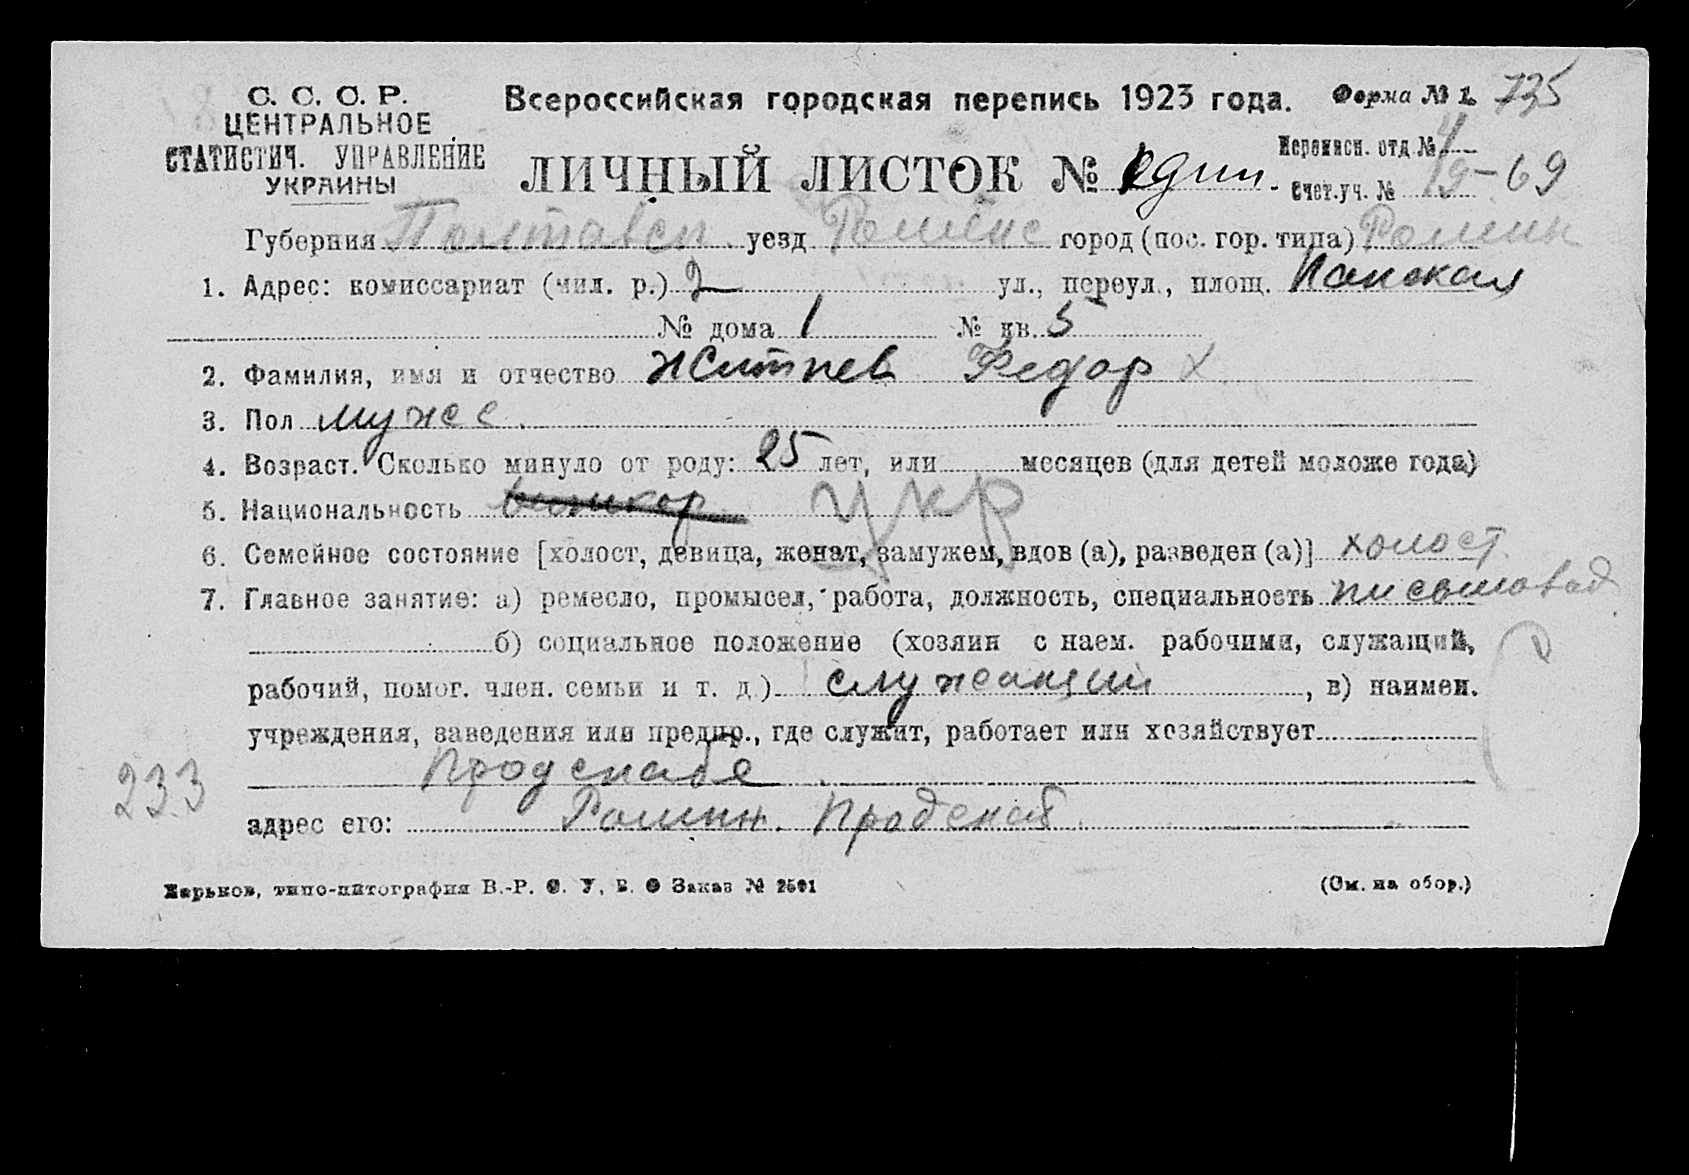 С. С. С. Р.
ЦЕНТРАЛЬНОЕ
СТАТИСТИЧ. УПРАВЛЕНИЕ
УКРАИНЫ
Всероссийская городская перепись 1923 года.
Форма № 1. 735
ЛИЧНЫЙ ЛИСТОК № один.
Переписн. отд. № 4
Счет. уч. № 19-69
Губерния Полтавск уезд Роменс город (пос. гор. типа) Ромны
1. Адрес: комиссариат (мил. р.) 2 ул., переул., площ.
№ дома 1 № кв. 5
2. Фамилия, имя и отчество Житнев Федор X
3. Пол мужс
4. Возраст. Сколько минуло от роду: 25 лет, или месяцев (для детей моложе года)
5. Национальность великор укр
6. Семейное состояние [холост, девица, женат, замужем, вдов (а), разведен (а)] холост
7. Главное занятие: а) ремесло, промысел, работа, должность, специальность письмовод
б) социальное положение (хозяин с наем. рабочими, служащий,
рабочий, помог. член. семьи и т. д.) служащий, в) наимен.
учреждения, заведения или предпр., где служит, работает или хозяйствует
Продснабе
233
адрес его: Ромны. Продснаб
Харьков, типо-литография В.-Р. С. У, В. О Заказ № 2501
(См. на обор.)